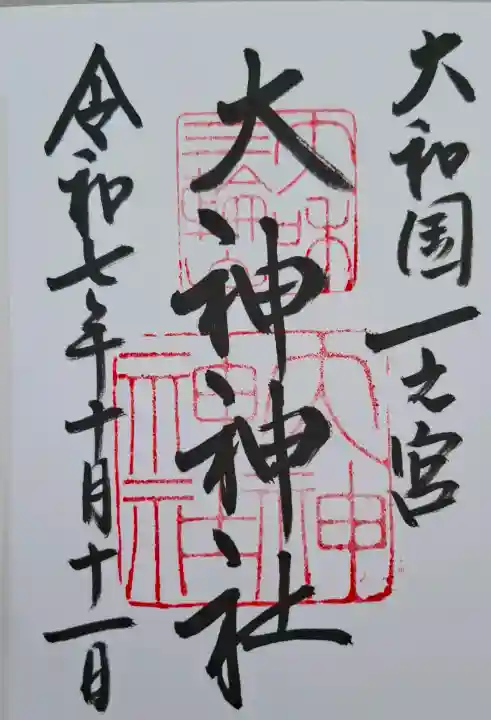 大和国一之宮
大神神社
令和七年十月十一日